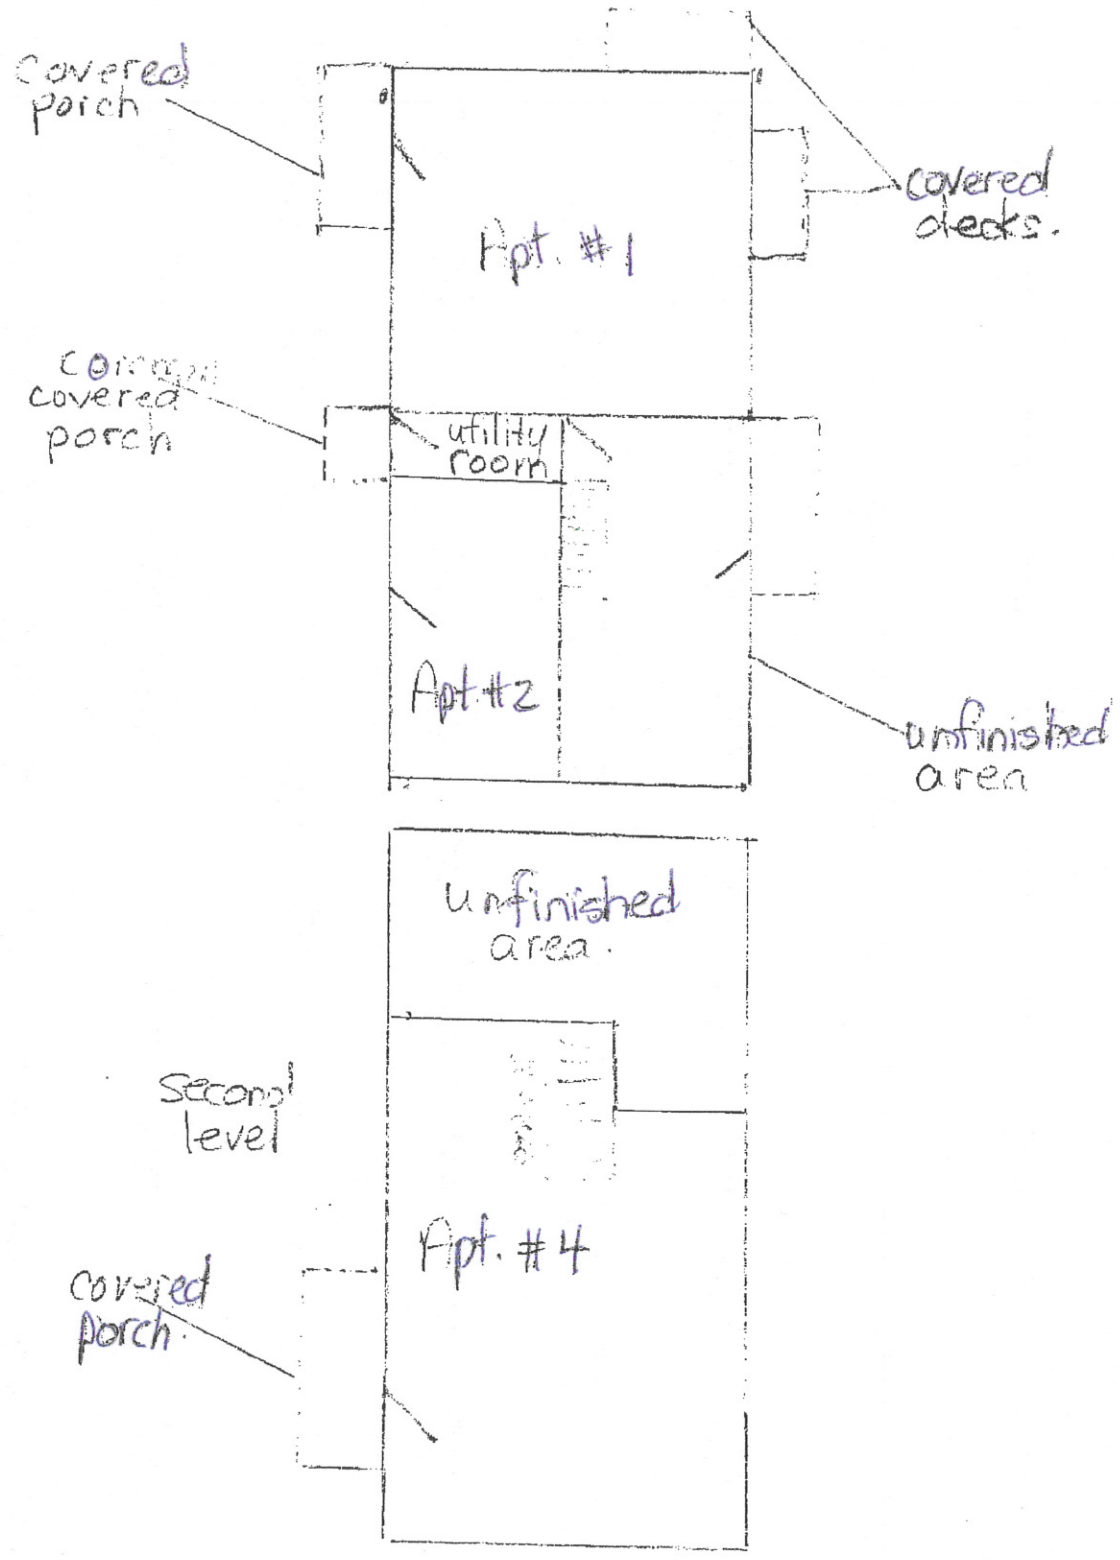 covered
porch
covered
decks.
Apt. #1
common
covered
porch
utility
room
Apt. #2
unfinished
area
unfinished
area.
second
level
Apt. #4
covered
porch.